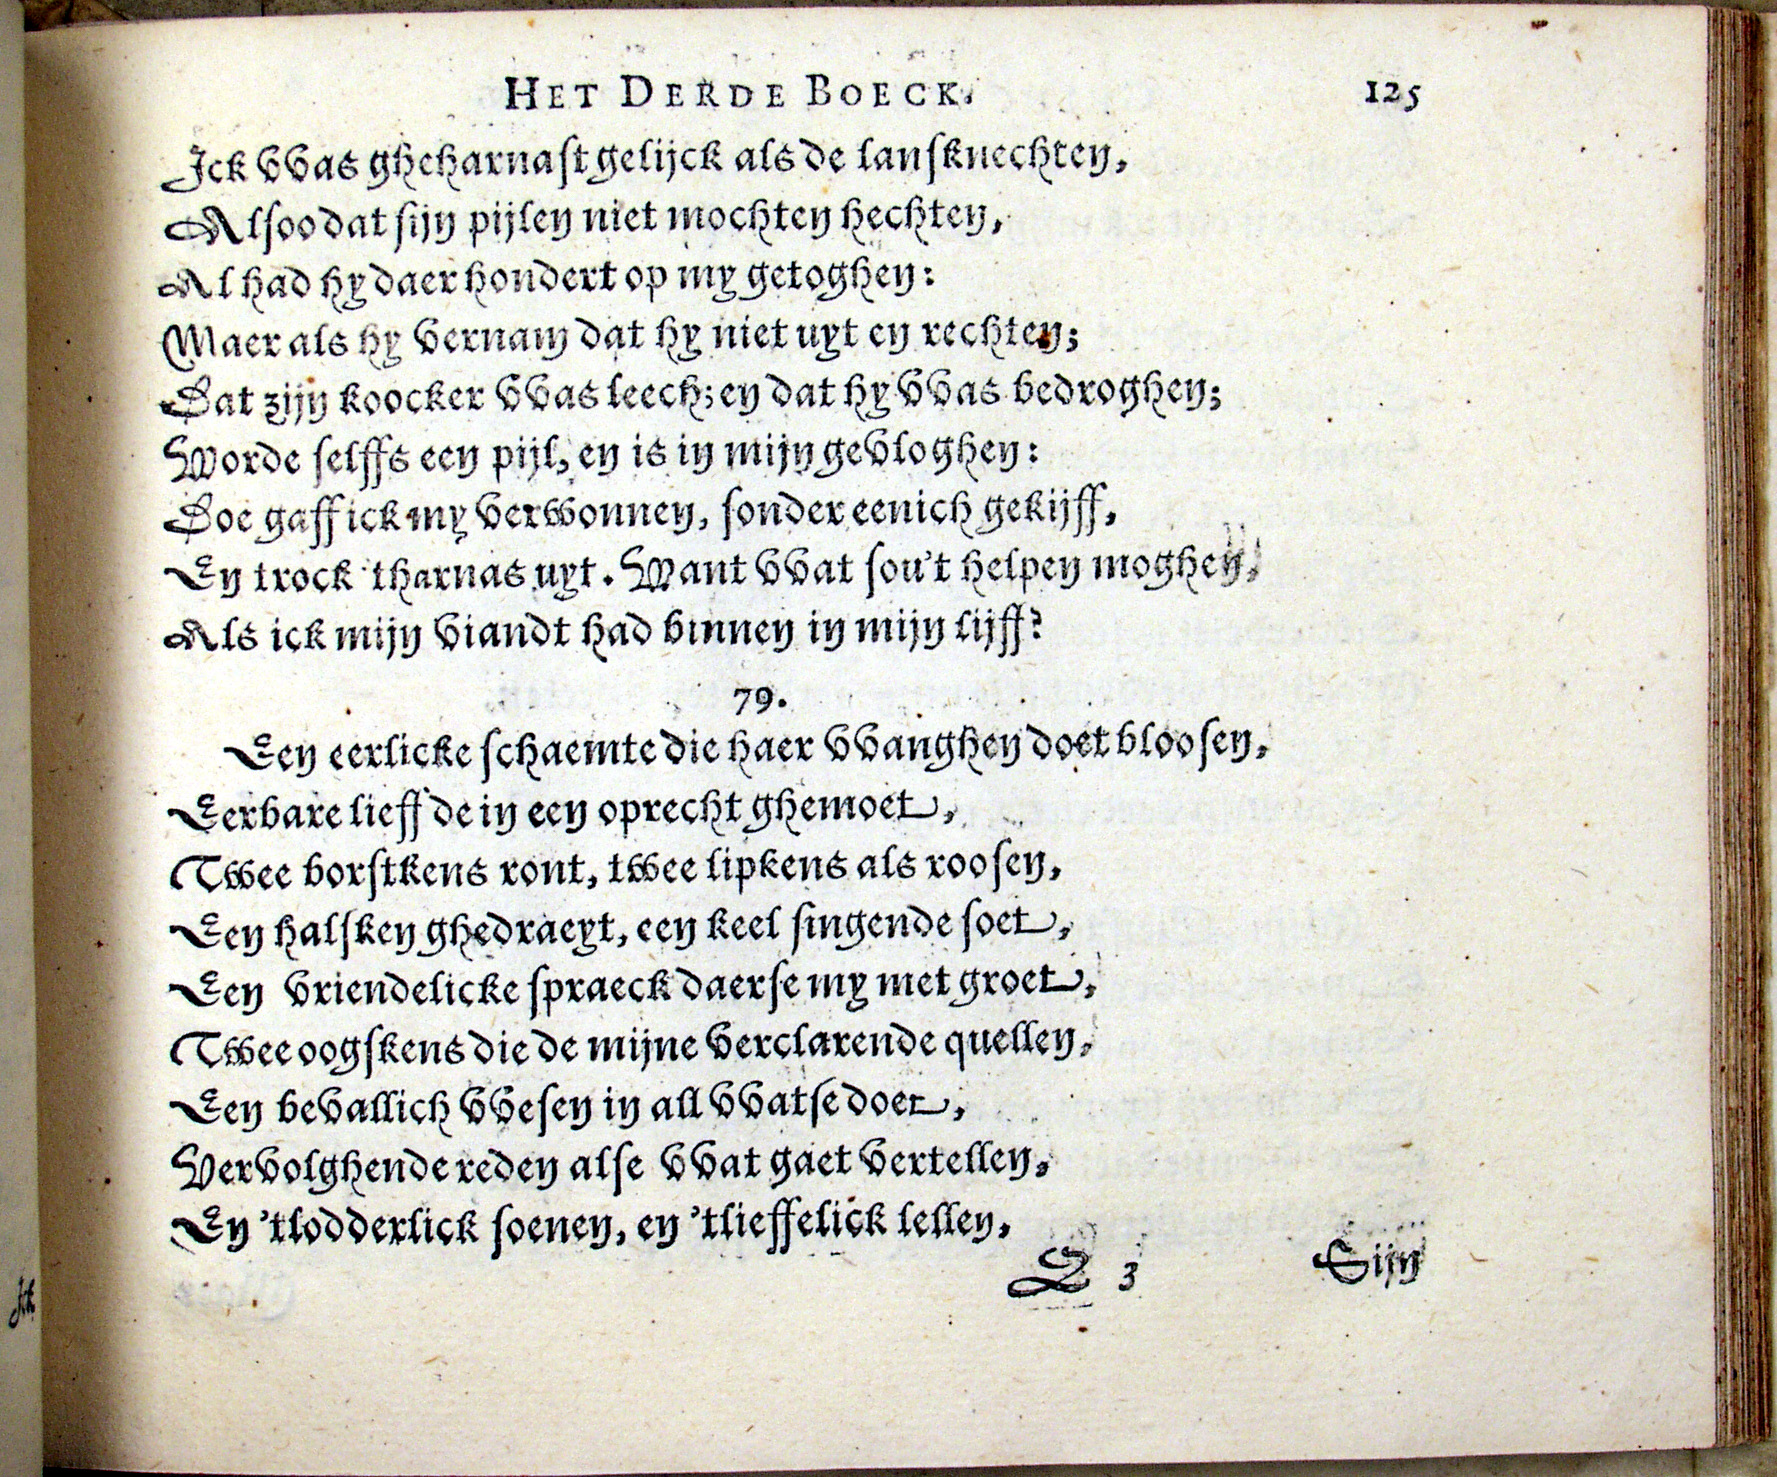 HET DERDE BOECK. 125
Ick vvas gheharnast gelijck als de lansknechten,
Alsoo dat sijn pijlen niet mochten hechten,
Al had hy daer hondert op my getoghen:
Maer als hy vernam dat hy niet uyt en rechten;
Dat zijn koocker vvas leech; en dat hy vvas bedroghen;
Worde selffs een pijl, en is in mijn gevloghen:
Doe gaff ick my verwonnen, sonder eenich gekijff,
En trock tharnas uyt. Want vvat sou't helpen moghen,
Als ick mijn viandt had binnen in mijn lijff?
79.
Een eerlicke schaemte die haer vvanghen doet bloosen,
Eerbare lieff de in een oprecht ghemoet,
Twee borstkens ront, twee lipkens als roosen,
Een halsken ghedraeyt, een keel singende soet,
Een vriendelicke spraeck daerse my met groet,
Twee oogskens die de mijne verclarende quellen,
Een bevallich vvesen in all vvatse doet,
Vervolghende reden alse vvat gaet vertellen,
En 'tlodderlick soenen, en 'tlieffelick lellen,
Q 3 Sijn